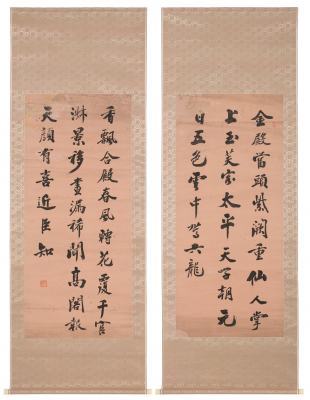 金殿當頭紫閣重仙人掌
上玉芙容太平天子朝元
日五色雲中駕六龍
香飄合殿春風轉花覆千官
淑景移晝漏稀聞高閣報
天顏有喜近臣知